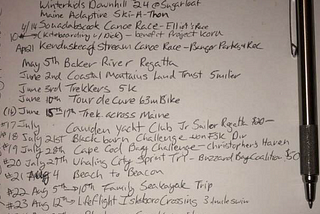 Winterkids Downhill 24 @ Sugarloaf
Maine Adaptive Ski-A-Thon
4/14 Souadabscook Canoe Race - Elliot's Race
(Kiteboarding w/ Disk) - benefit Project Koru
April Kenduskeag Stream Canoe Race - Bangor Parks & Rec
May 5th Baker River Regatta
June 2nd Coastal Mountains Land Trust 5miler
June 3rd Trekkers 5K
June 10th Tour de Cure 63m Bike
(16) June 15-17th Trek across Maine
#17 July Camden Yacht Club Jr Sailor Regatta
#18 July 21st Black barn Challenge - won 5K Div
#19 July 28th Cape Cod Bay Challenge - Christopher's Haven
#20 July 29th Whaling City Sprint Tri - Buzzard Bay Coalition $50
#21 Aug 4 Beach to Beacon
#22 Aug 5th-10th Family Seakayak Trip
#23 Aug 12th Lifeflight Islesboro Crossing 3 mile swim